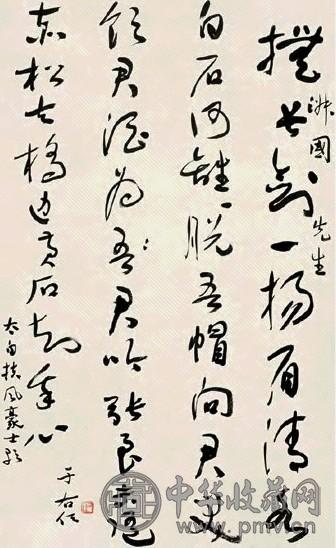 國先生
撫長劍一揚眉清水
白石何離離脫吾帽向君笑
飲君酒為吾君吟張良未逐
赤松去橋邊黃石知我心
太白扶風豪士歌
于右任
中华收藏网
www.pmv.cn